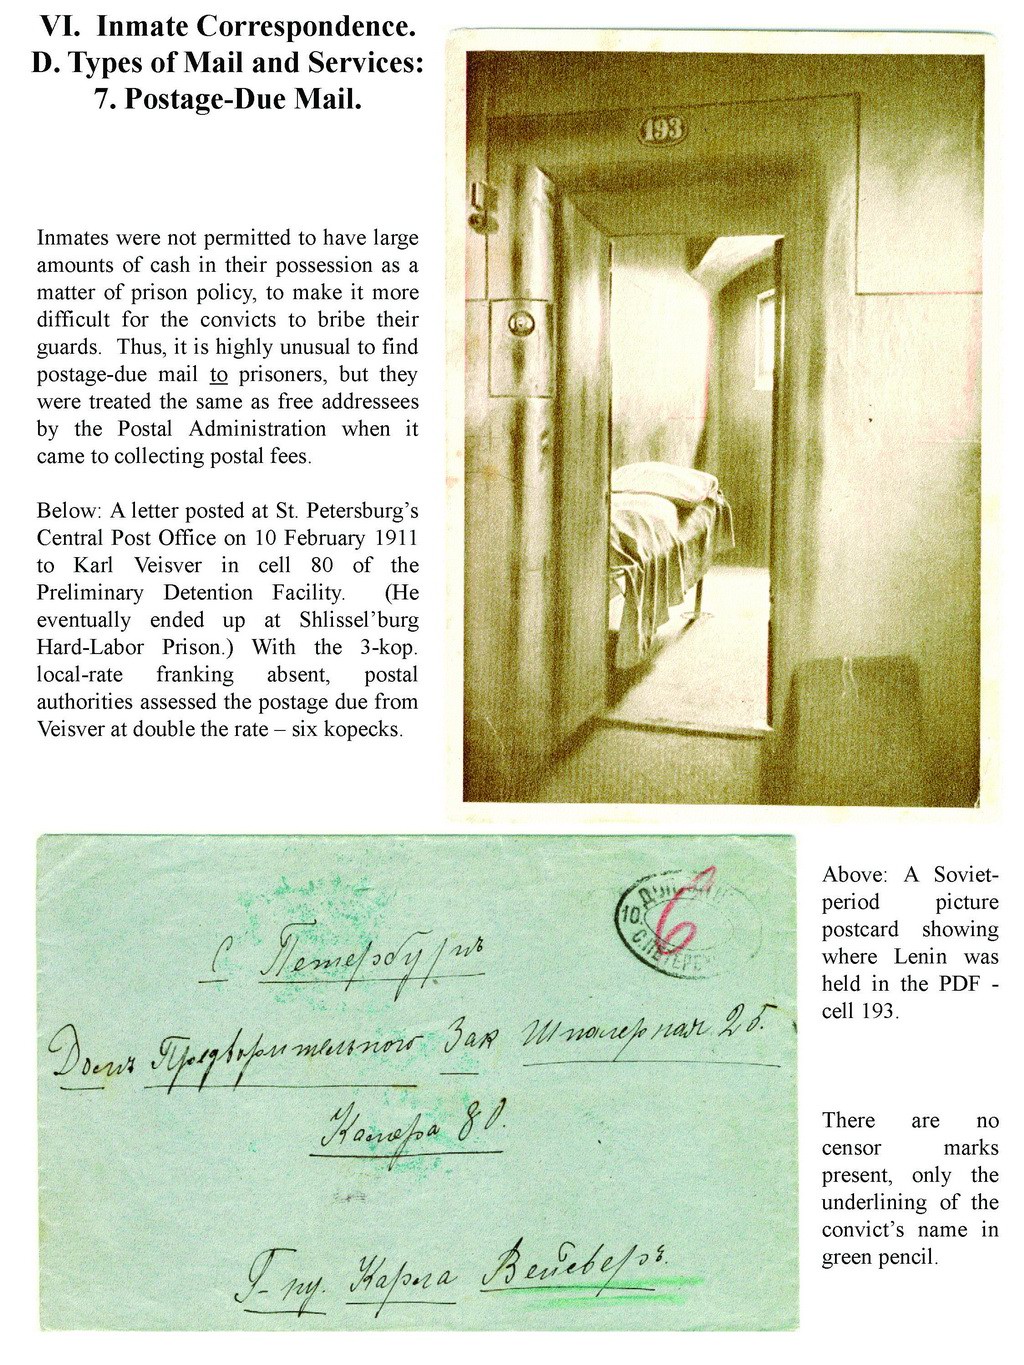 VI. Inmate Correspondence.
D. Types of Mail and Services:
7. Postage-Due Mail.
193
Inmates were not permitted to have large
amounts of cash in their possession as a
matter of prison policy, to make it more
difficult for the convicts to bribe their
guards. Thus, it is highly unusual to find
postage-due mail to prisoners, but they
were treated the same as free addressees
by the Postal Administration when it
came to collecting postal fees.
Below: A letter posted at St. Petersburg's
Central Post Office on 10 February 1911
to Karl Veisver in cell 80 of the
Preliminary Detention Facility. (He
eventually ended up at Shlissel'burg
Hard-Labor Prison.) With the 3-kop.
local-rate franking absent, postal
authorities assessed the postage due from
Veisver at double the rate – six kopecks.
Above: A Soviet-
period picture
postcard showing
where Lenin was
held in the PDF -
cell 193.
There are no
censor marks
present, only the
underlining of the
convict's name in
green pencil.
10.
6
С Петербургъ
Домъ Предворительного Зак Шпалерная 25.
Камера 80.
Г-ну. Карла Вейсверъ.